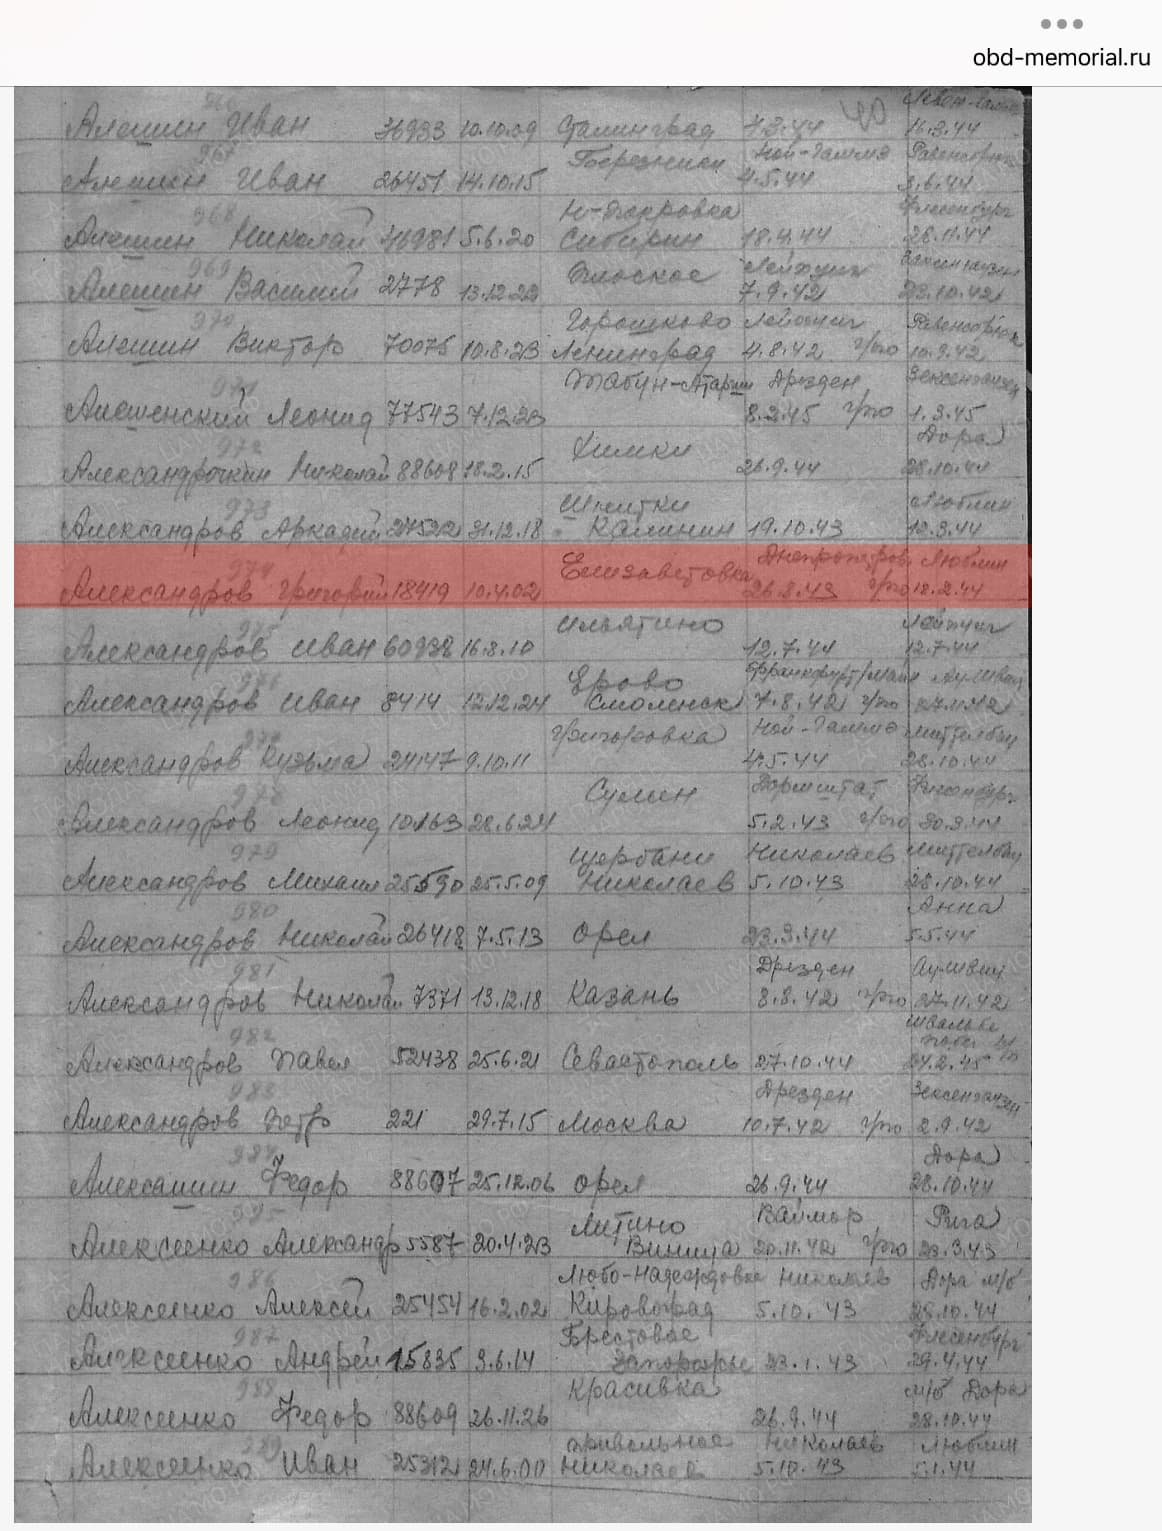 obd-memorial.ru
40
966
Алешин Иван 76933 10.10.09 Сталинград 7.3.44 16.3.44
967
Березники Ной-Гамме
Алешин Иван 26451 14.10.15 4.5.44 3.6.44
968
Н-Покровка
Алешин Николай 46981 5.6.20 Сибирии 18.4.44 28.11.44
969
Плоское Лейпциг
Алешин Василий 2778 13.12.22 7.9.42 23.10.42
970
Горошково Лейпциг
Алешин Виктор 70075 10.8.23 Ленинград 4.8.42 г/по 10.9.42
971
Дрезден
Алешенский Леонид 77543 7.12.23 8.2.45 г/по 1.3.45
972
Химки Дора
Александрочкин Николай 88608 18.2.15 26.9.44 28.10.44
973
Шпитки Люблин
Александров Аркадий 27522 31.12.18 Калинин 19.10.43 12.3.44
974
Елизаветовка Днепропетров. Люблин
Александров Григорий 18419 10.4.02 26.8.43 г/по 18.2.44
975
Ильятино Лейпциг
Александров Иван 60938 16.8.10 12.7.44 12.7.44
976
Ерово Франкфурт/Майн
Александров Иван 8414 12.12.24 Смоленск 7.8.42 г/по 27.11.42
Григоровка Ной-Гамме Миттелбау
Александров Кузьма 24147 9.10.11 4.5.44 28.10.44
978
Сулин Дормштат
Александров Леонид 10163 28.6.24 5.2.43 г/по 30.3.44
979
Щербани Николаев Миттелбау
Александров Михаил 25590 25.5.09 Николаев 5.10.43 28.10.44
980
Анна
Александров Николай 26418 7.5.13 Орел 23.3.44 5.5.44
981
Дрезден
Александров Николай 7371 13.12.18 Казань 8.8.42 г/по 27.11.42
982
Александров Павел 52438 25.6.21 Севастополь 27.10.44 24.2.45
983
Дрезден
Александров Петр 221 29.7.15 Москва 10.7.42 г/по 2.9.42
984
Дора
Алексашин Федор 88607 25.12.06 Орел 26.9.44 28.10.44
985
Литино Ваймар Рига
Алексеенко Александр 5587 20.4.23 Виница 20.11.42 г/по 23.3.43
986
Любо-Надеждовка Николаев Дора м/б
Алексеенко Алексей 25454 16.2.02 Кировоград 5.10.43 28.10.44
987
Брестовае
Алексеенко Андрей 15835 3.6.14 Запорожье 23.1.43 29.4.44
988
Красивка м/б Дора
Алексеенко Федор 88609 26.11.26 26.9.44 28.10.44
989
Привольное Николаев Люблин
Алексеенко Иван 25312 24.6.00 Николаев 5.10.43 5.1.44